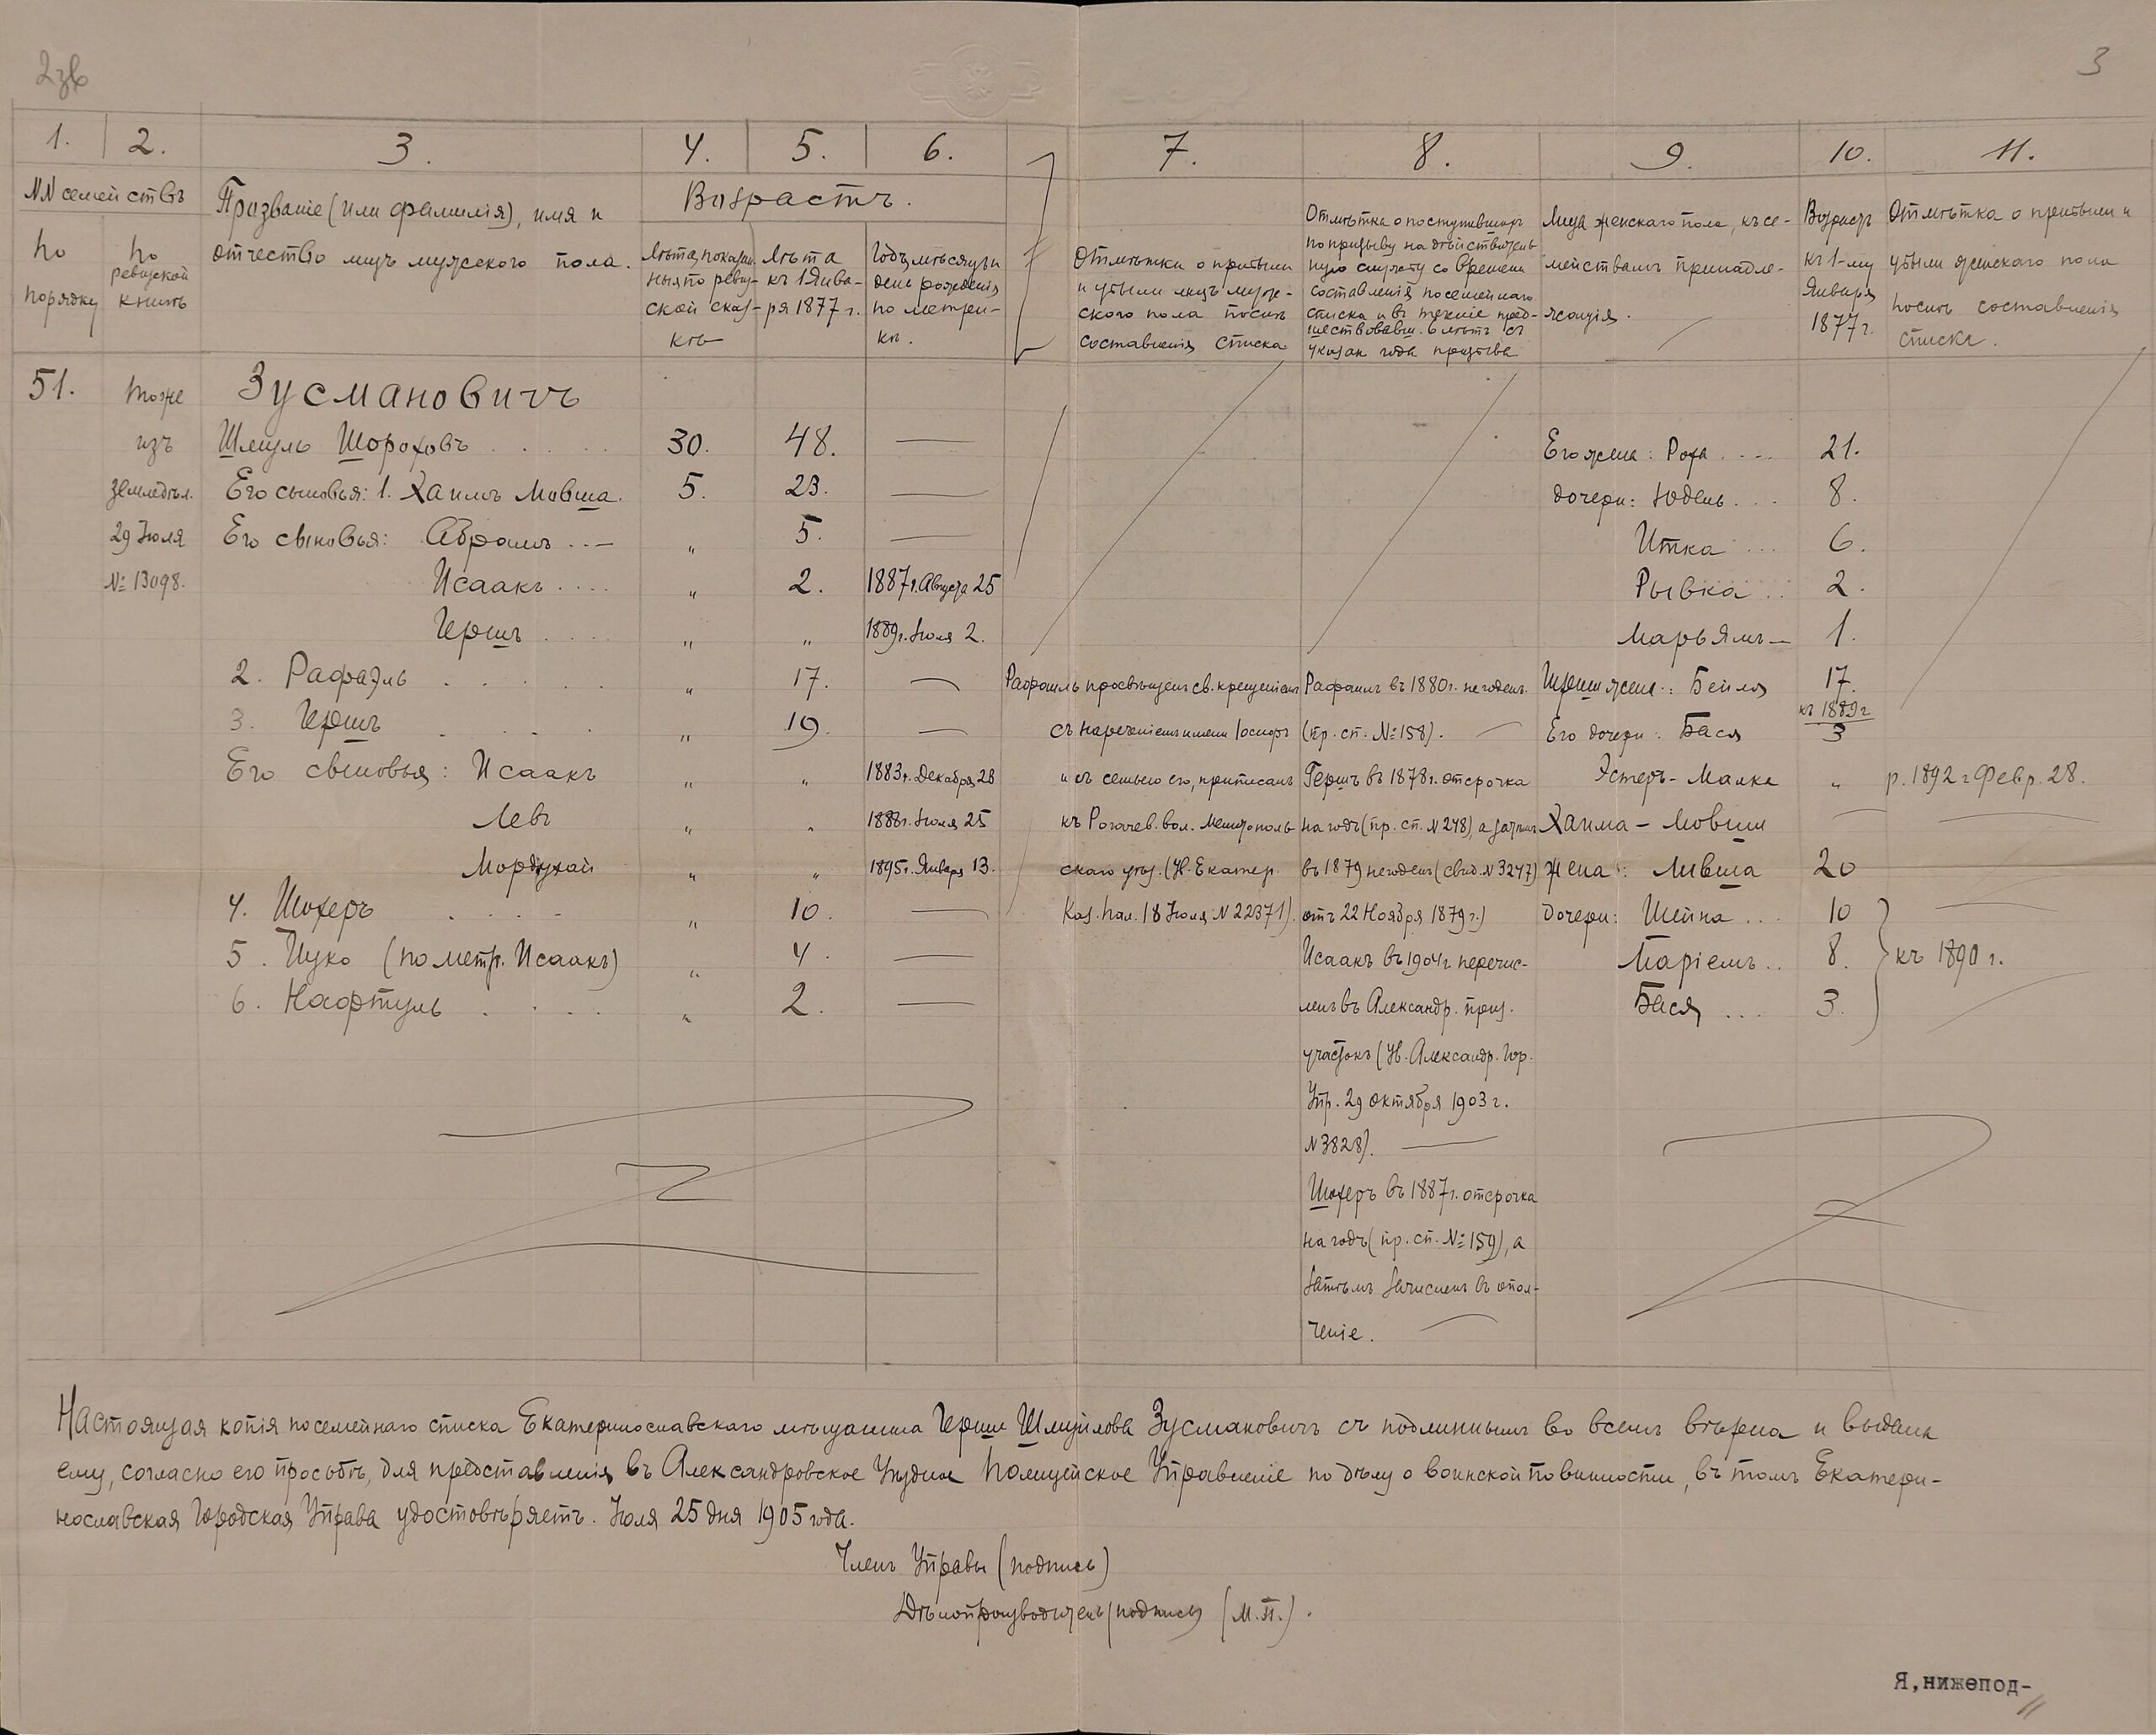 2зв
3
1. 2. 3. 4. 5. 6. 7. 8. 9. 10. 11.
NN семействъ
по порядку
по ревизской книгѣ
Прозваніе (или фамилія), имя и
отчество лицъ мужского пола.
Возрастъ.
Лѣта, показан-
ныя по ревиз-
ской сказ-
кѣ
Лѣта
къ 1 Янва-
ря 1877 г.
Годъ, мѣсяцъ и
день рожденія
по метри-
кѣ.
Отмѣтки о прибыли
и убыли лицъ муж-
ского пола послѣ
составленія списка
Отмѣтка о поступившихъ
по призыву на дѣйствитель-
ную службу со времени
составленія посемейнаго
списка и въ теченіе пред-
шествовавш. 6 лѣтъ съ
указан. года призыва
Лица женскаго пола, къ се-
мействамъ принадле-
жащія.
Возрастъ
къ 1-му
Января
1877 г.
Отмѣтка о прибыли и
убыли женскаго пола
послѣ составленія
списка.
51. тоже Зусмановичъ
изъ Шмуль Шороховъ 30. 48. — Его жена: Роха 21.
земледѣл. Его сыновья: 1. Хаимъ Мовша. 5. 23. — дочери: Юдель 8.
29 Іюля Его сыновья: Абрамъ „ 5. — Итка 6.
№ 13098. Исаакъ „ 2. 1887 г. Августа 25 Рывка 2.
Гершъ „ „ 1889 г. Іюля 2. Марьямъ — 1.
2. Рафаэль „ 17. — Рафаилъ просвѣщенъ св. крещеніемъ Рафаилъ въ 1880 г. негоденъ Герши жена: Бейля 17.
3. Гершъ „ 19. — съ нареченіемъ имени Іосифъ (пр. сп. № 158). — Его дочери: Бася къ 1889 г 3
Его сыновья: Исаакъ „ „ 1883 г. Декабря 28 и съ семьею его, приписанъ Гершъ въ 1878 г. отсрочка Эстеръ-Малка „ р. 1892 г Февр. 28.
Левъ „ „ 1888 г. Іюля 25 къ Рогачев. вол. Мелитополь на годъ (пр. сп. N 248), а затѣмъ Хаима-Мовши —
Мордухай „ „ 1895 г. Января 13. скаго уѣз. (У. Екатер. въ 1879 негоденъ (свид. N 3247) жена: Лившa 20
4. Шохеръ „ 10. — Каз. Пал. 18 Іюля N 22371). отъ 22 Ноября 1879 г.) дочери: Шейна 10
5. Ицко (по метр. Исаакъ) „ 4. — Исаакъ въ 1904 г перечис- Маріемъ 8. къ 1890 г.
6. Нафтуль „ 2. — ленъ въ Александр. приз. Бася 3.
участокъ (У. Александр. Гор.
Упр. 29 октября 1903 г.
N 3828). —
Шохеръ въ 1887 г. отсрочка
на годъ (пр. сп. № 159), а
затѣмъ зачисленъ въ опол-
ченіе.
Настоящая копія посемейнаго списка Екатеринославскаго мѣщанина Герша Шмуйлова Зусмановичъ съ подлиннымъ во всемъ вѣрна и выдана
ему, согласно его просьбѣ, для представленія въ Александровское Уѣздное Полицейское Управленіе по дѣлу о воинской повинности, въ томъ Екатери-
нославская Городская Управа удостовѣряетъ. Іюля 25 дня 1905 года.
Членъ Управы (подпись)
Дѣлопроизводитель (подпись) (М.П.).
Я, нижепод-